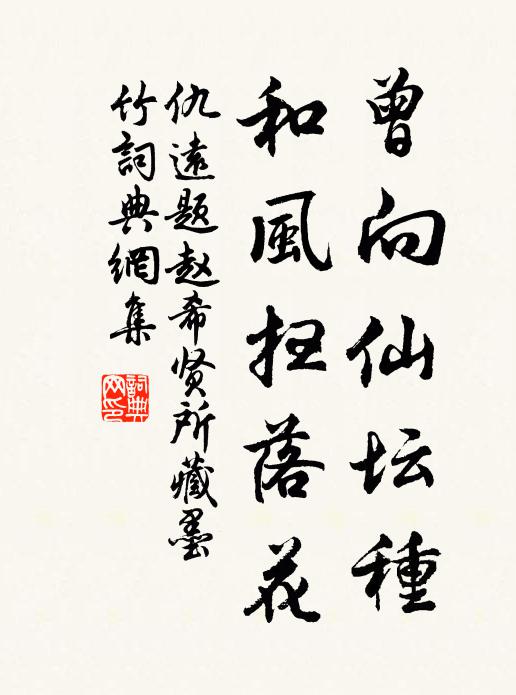 曾向仙坛種
和風扫落花
仇遠题赵希贤所藏墨
竹詞典網集
詞典
网印